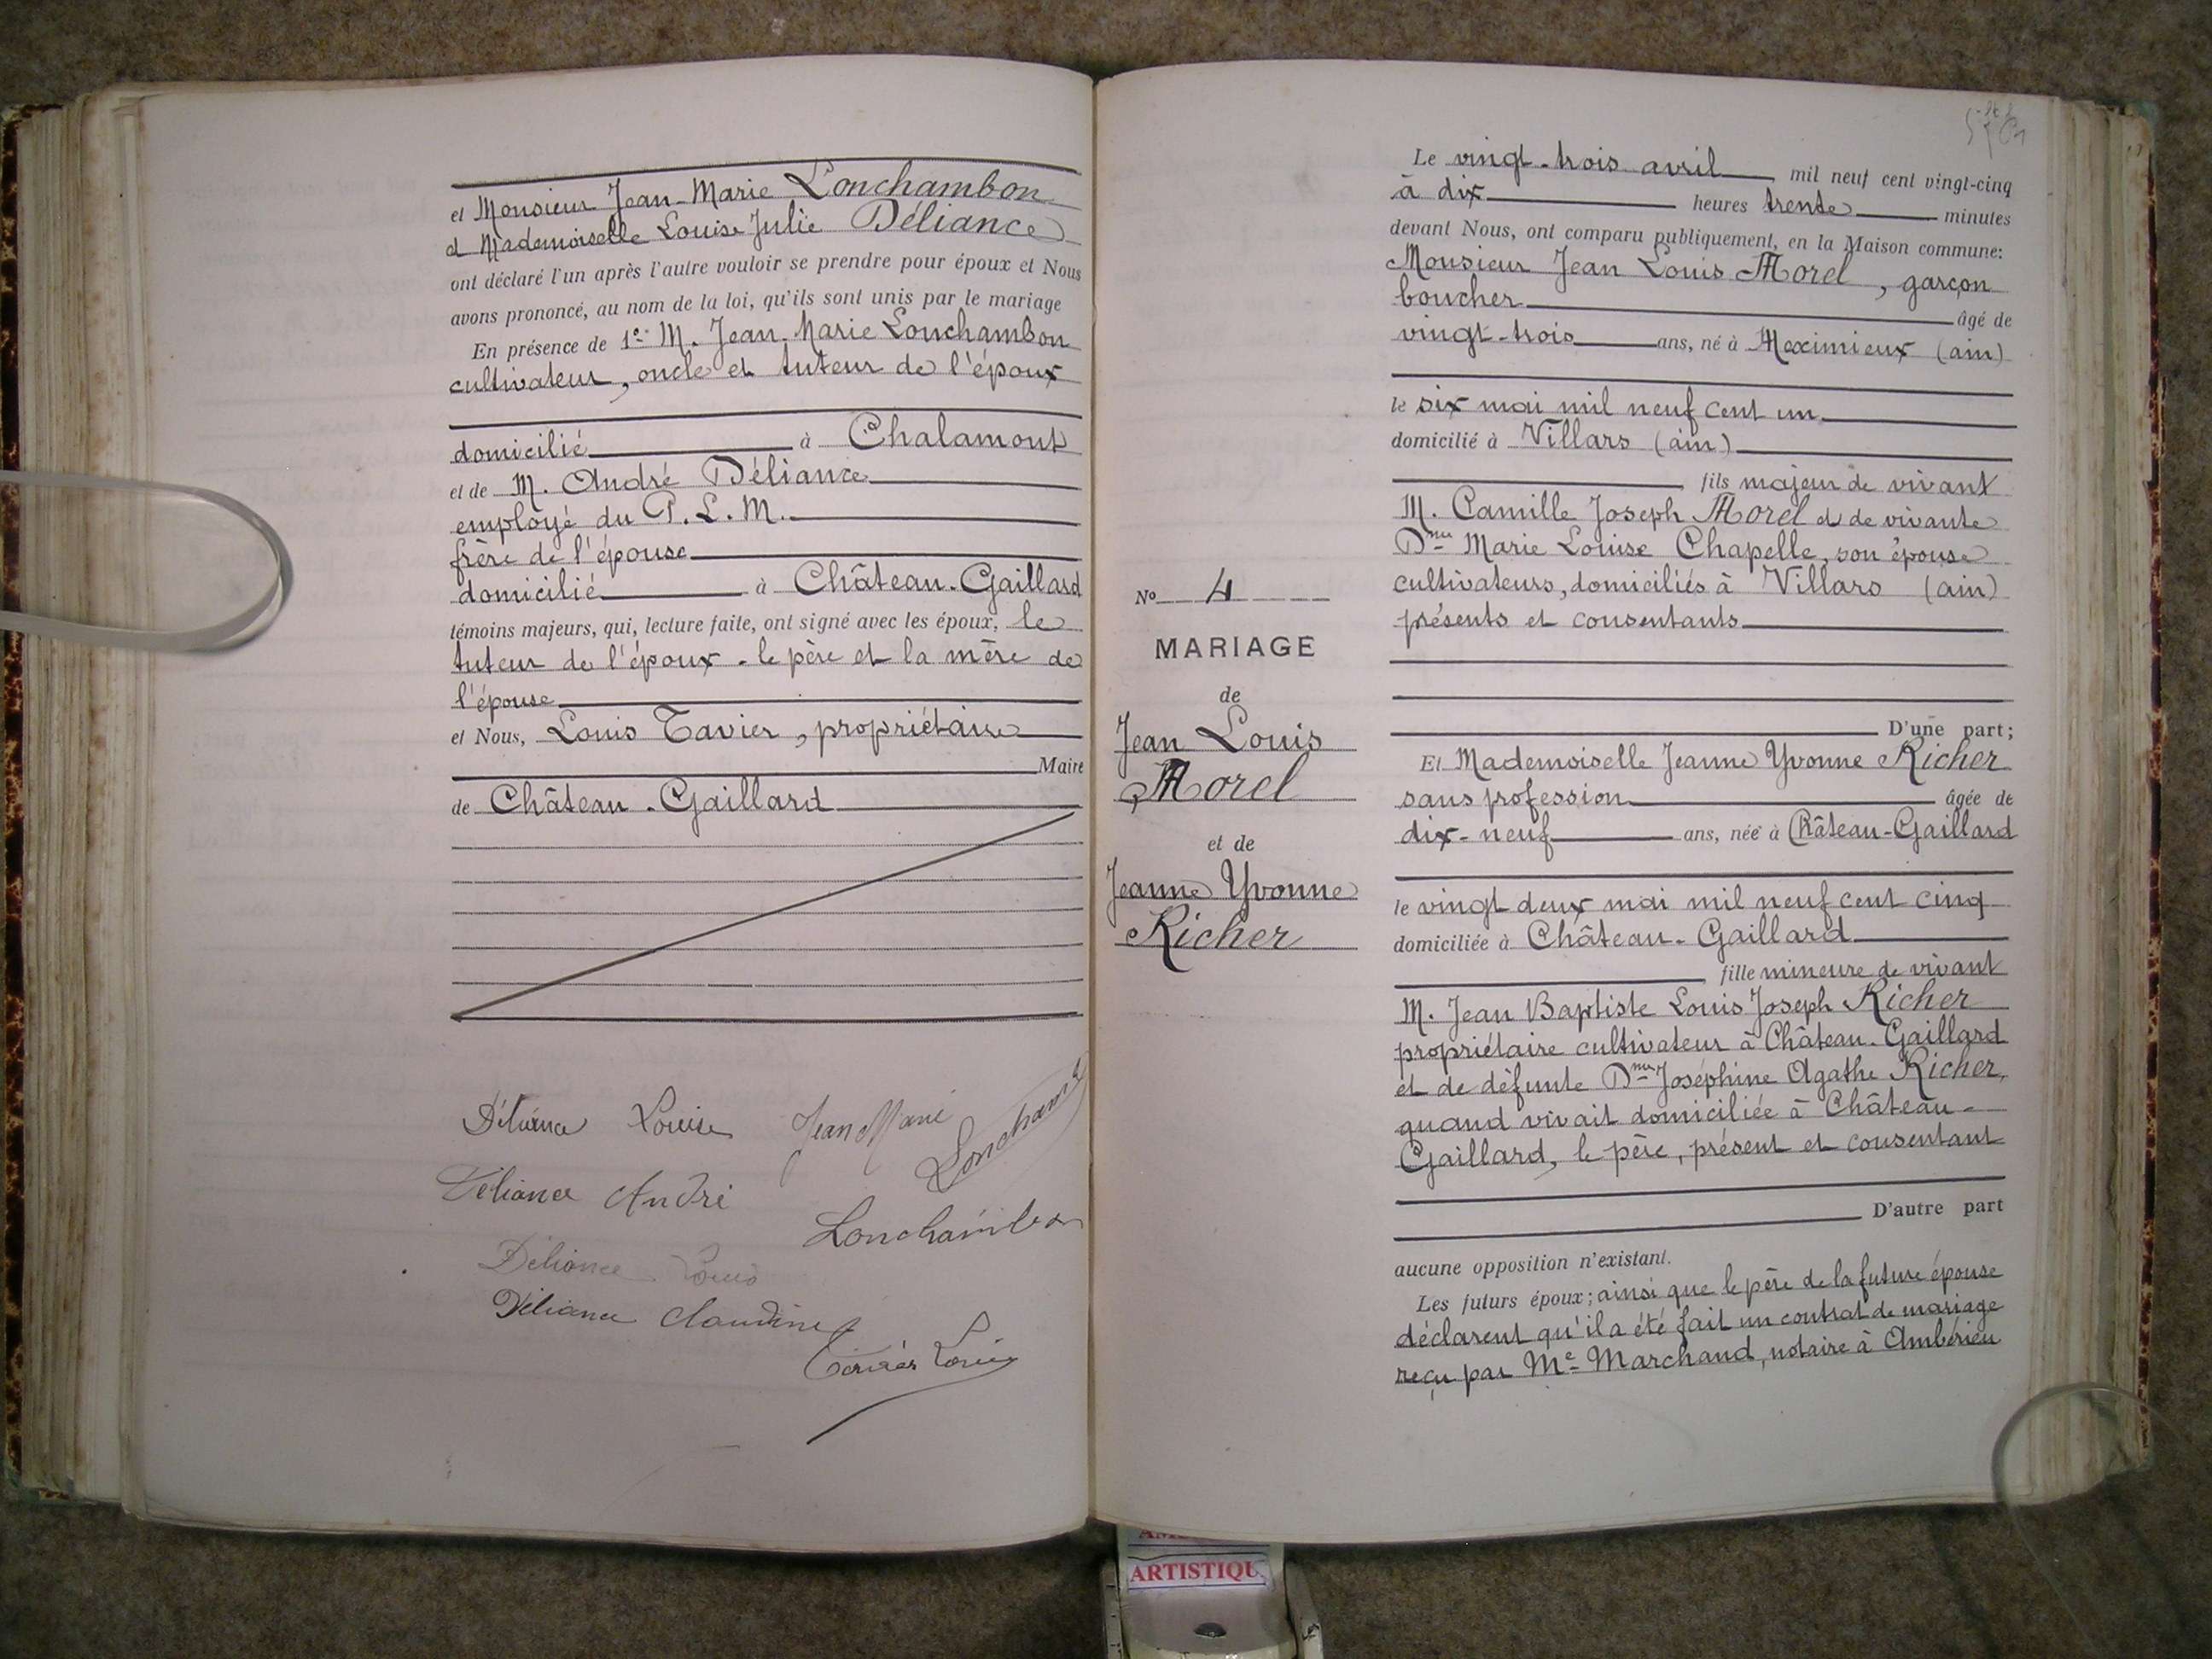 et Monsieur Jean-Marie Lonchambon
et Mademoiselle Louise Julie Déliance
ont déclaré l'un après l'autre vouloir se prendre pour époux et Nous
avons prononcé, au nom de la loi, qu'ils sont unis par le mariage
En présence de 1º M. Jean-Marie Lonchambon
cultivateur, oncle et tuteur de l'époux
domicilié à Chalamont
et de M. André Déliance
employé du P. L. M.
frère de l'épouse
domicilié à Château-Gaillard
témoins majeurs, qui, lecture faite, ont signé avec les époux, le
tuteur de l'époux - le père et la mère de
l'épouse
et Nous, Louis Tavier, propriétaire
Maire
de Château-Gaillard
Déliance Louise Jean Marie
Lonchamb
Déliance André
Lonchambon
Déliance Louis
Déliance Claudine
Tavier Louis
No 4
MARIAGE
de
Jean Louis
Morel
et de
Jeanne Yvonne
Richer
Le vingt-trois avril mil neuf cent vingt-cinq
à dix heures trente minutes
devant Nous, ont comparu publiquement, en la Maison commune:
Monsieur Jean Louis Morel, garçon
boucher âgé de
vingt-trois ans, né à Meximieux (ain)
le six mai mil neuf cent un
domicilié à Villars (ain)
fils majeur de vivant
M. Camille Joseph Morel et de vivante
Dme Marie Louise Chapelle, son épouse
cultivateurs, domiciliés à Villars (ain)
présents et consentants
D'une part;
Et Mademoiselle Jeanne Yvonne Richer
sans profession âgée de
dix-neuf ans, née à Château-Gaillard
le vingt deux mai mil neuf cent cinq
domiciliée à Château-Gaillard
fille mineure de vivant
M. Jean Baptiste Louis Joseph Richer
propriétaire cultivateur à Château-Gaillard
et de défunte Dme Joséphine Agathe Richer,
quand vivait domiciliée à Château-
Gaillard, le père, présent et consentant
D'autre part
aucune opposition n'existant.
Les futurs époux; ainsi que le père de la future épouse
déclarent qu'il a été fait un contrat de mariage
reçu par Me Marchand, notaire à Ambérieu
ARTISTIQU